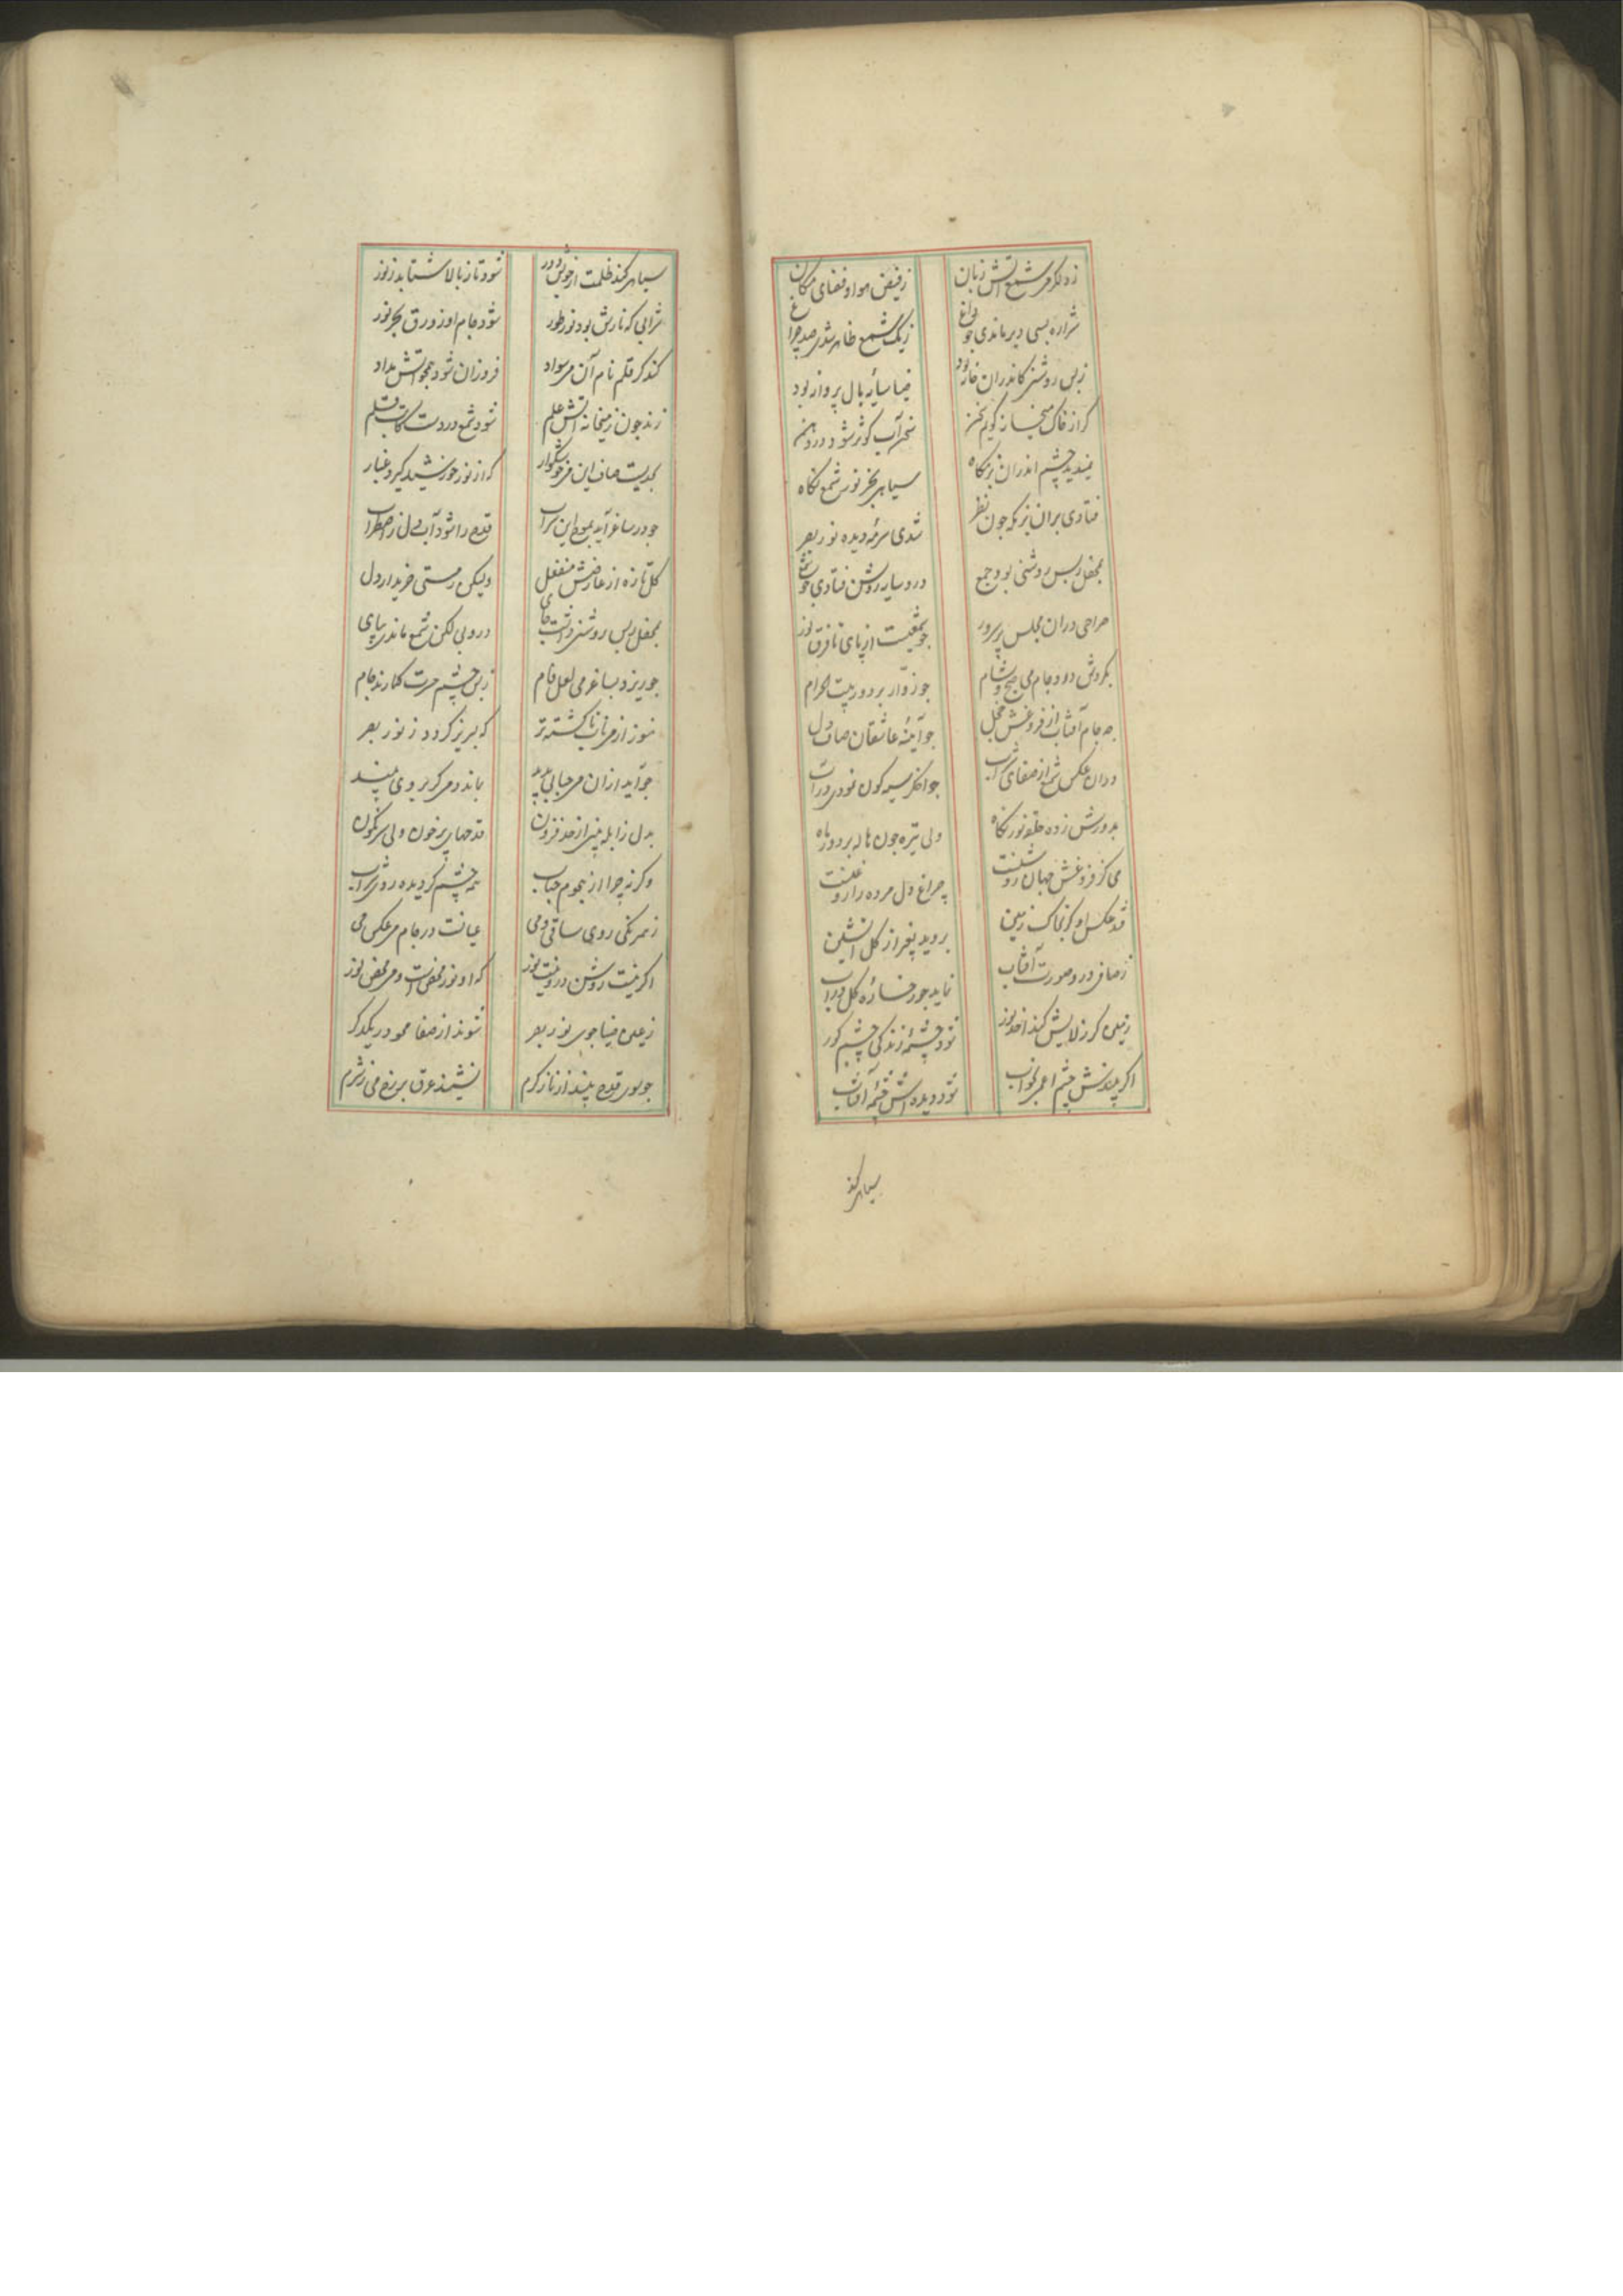 شراره بسی دیر ماندی چو باغ
زیک شمع ظاهر شدی صد چراغ
زبس روشنی کاندران خانه بود
ضیا سایه بال پروانه بود
گر از خاک میخانه گویم سخن
سخن آب کوثر شود در دهن
ندیدی چشم اندران بزمگاه
سیاهی بجز نور شمع نگاه
فتادی بران بزمگه چون نظر
شدی سرمه دیده نور بصر
بمحفل زبس روشنی بود جمع
درو سایه روشن فتادی چو شمع
صراحی دران مجلس پر سرور
چو شمعیست از پای تا فرق نور
بگردش درو جام می صبح و شام
چو زوار بر دور بیت الحرام
چه جام آفتاب از فروغش خجل
چو آینه عاشقان صاف دل
دران عکس شمع از صفای شراب
بدورش زده حلقه نور نگاه
ولی تیره چون هاله بر دور ماه
می کز فروغش جهان روشنست
چراغ دل مرده را روغنست
فتد عکس او گر بخاک زمین
بروید بغیر از گل آتشین
ز صافی درو صورت آفتاب
نماید چو رخساره گل در آب
زمین گر ز لایش کند اخذ نور
شود چشمه زندگی چشم کور
اگر بیندش چشم اعمی بخواب
شود دیده اش چشمه آفتاب
سیاهی کند
سیاهی کند ظلمت از خویش دور
شود تا ز بالا شتابد ز نور
شرابی که نارش بود نور طور
شود جام او زورق بحر نور
کند گر قلم نام آن می سواد
فروزان شود همچو آتش مداد
زند چون ز میخانه آتش علم
شود شمع در دست کاتب قلم
بحدیست صاف این می خوشگوار
که از نور خورشید گیرد غبار
چو در ساغر آید بموج این شراب
قدح را شود آب دل ز اضطراب
گل تازه از عارضش منفعل
ولیکن ز مستی خریدار دل
بمحفل زبس روشنی داشت جای
درو بی لگن شمع ماندی بپای
چو ریزد بساغر می لعل فام
زبس چشم حسرت گمارند جام
هنوز از می ناب ناگشته تر
که لبریز گردد ز نور بصر
چو آید ازان می حبابی پدید
بدل ز آبله بینی از حد فزون
قدحهای پر خون ولی سرنگون
وگر نه چرا از هجوم حباب
همه چشم گردیده روی شراب
ز همرنگی روی ساقی و می
عیانست در جام می عکس می
اگر نیست روشن درو نیست نور
که او نور محض است و می محض نور
زعین ضیا جوی نور بصر
شوند از صفا محو در یکدگر
چو سوی قدح بیند از ناز گرم
نشیند عرق بر رخ می ز شرم